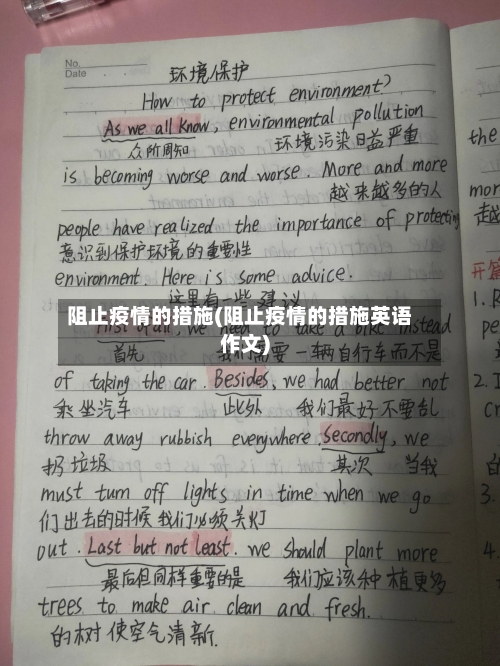 No.
Date
环境保护
How to protect environment?
As we all know, environmental pollution
众所周知 环境污染日益严重
is becoming worse and worse More and more
越来越多的人
people have realized the importance of protecting
意识到保护环境的重要性
environment. Here is some advice.
这里有一些建议
阻止疫情的措施(阻止疫情的措施英语
作文)
First of all, we need to take a bike instead
首先 我们需要一辆自行车而不是
of taking the car. Besides, we had better not
乘坐汽车 此外 我们最好不要乱
throw away rubbish everywhere. Secondly, we
扔垃圾 其次 当我
must turn off lights in time when we go
们出去的时候我们必须关灯
out. Last but not least. we should plant more
最后但同样重要的是 我们应该种植更多
trees to make air clean and fresh.
的树使空气清新.
the
mor
越
开篇
1.
per
2.
cr
的
3.
4.